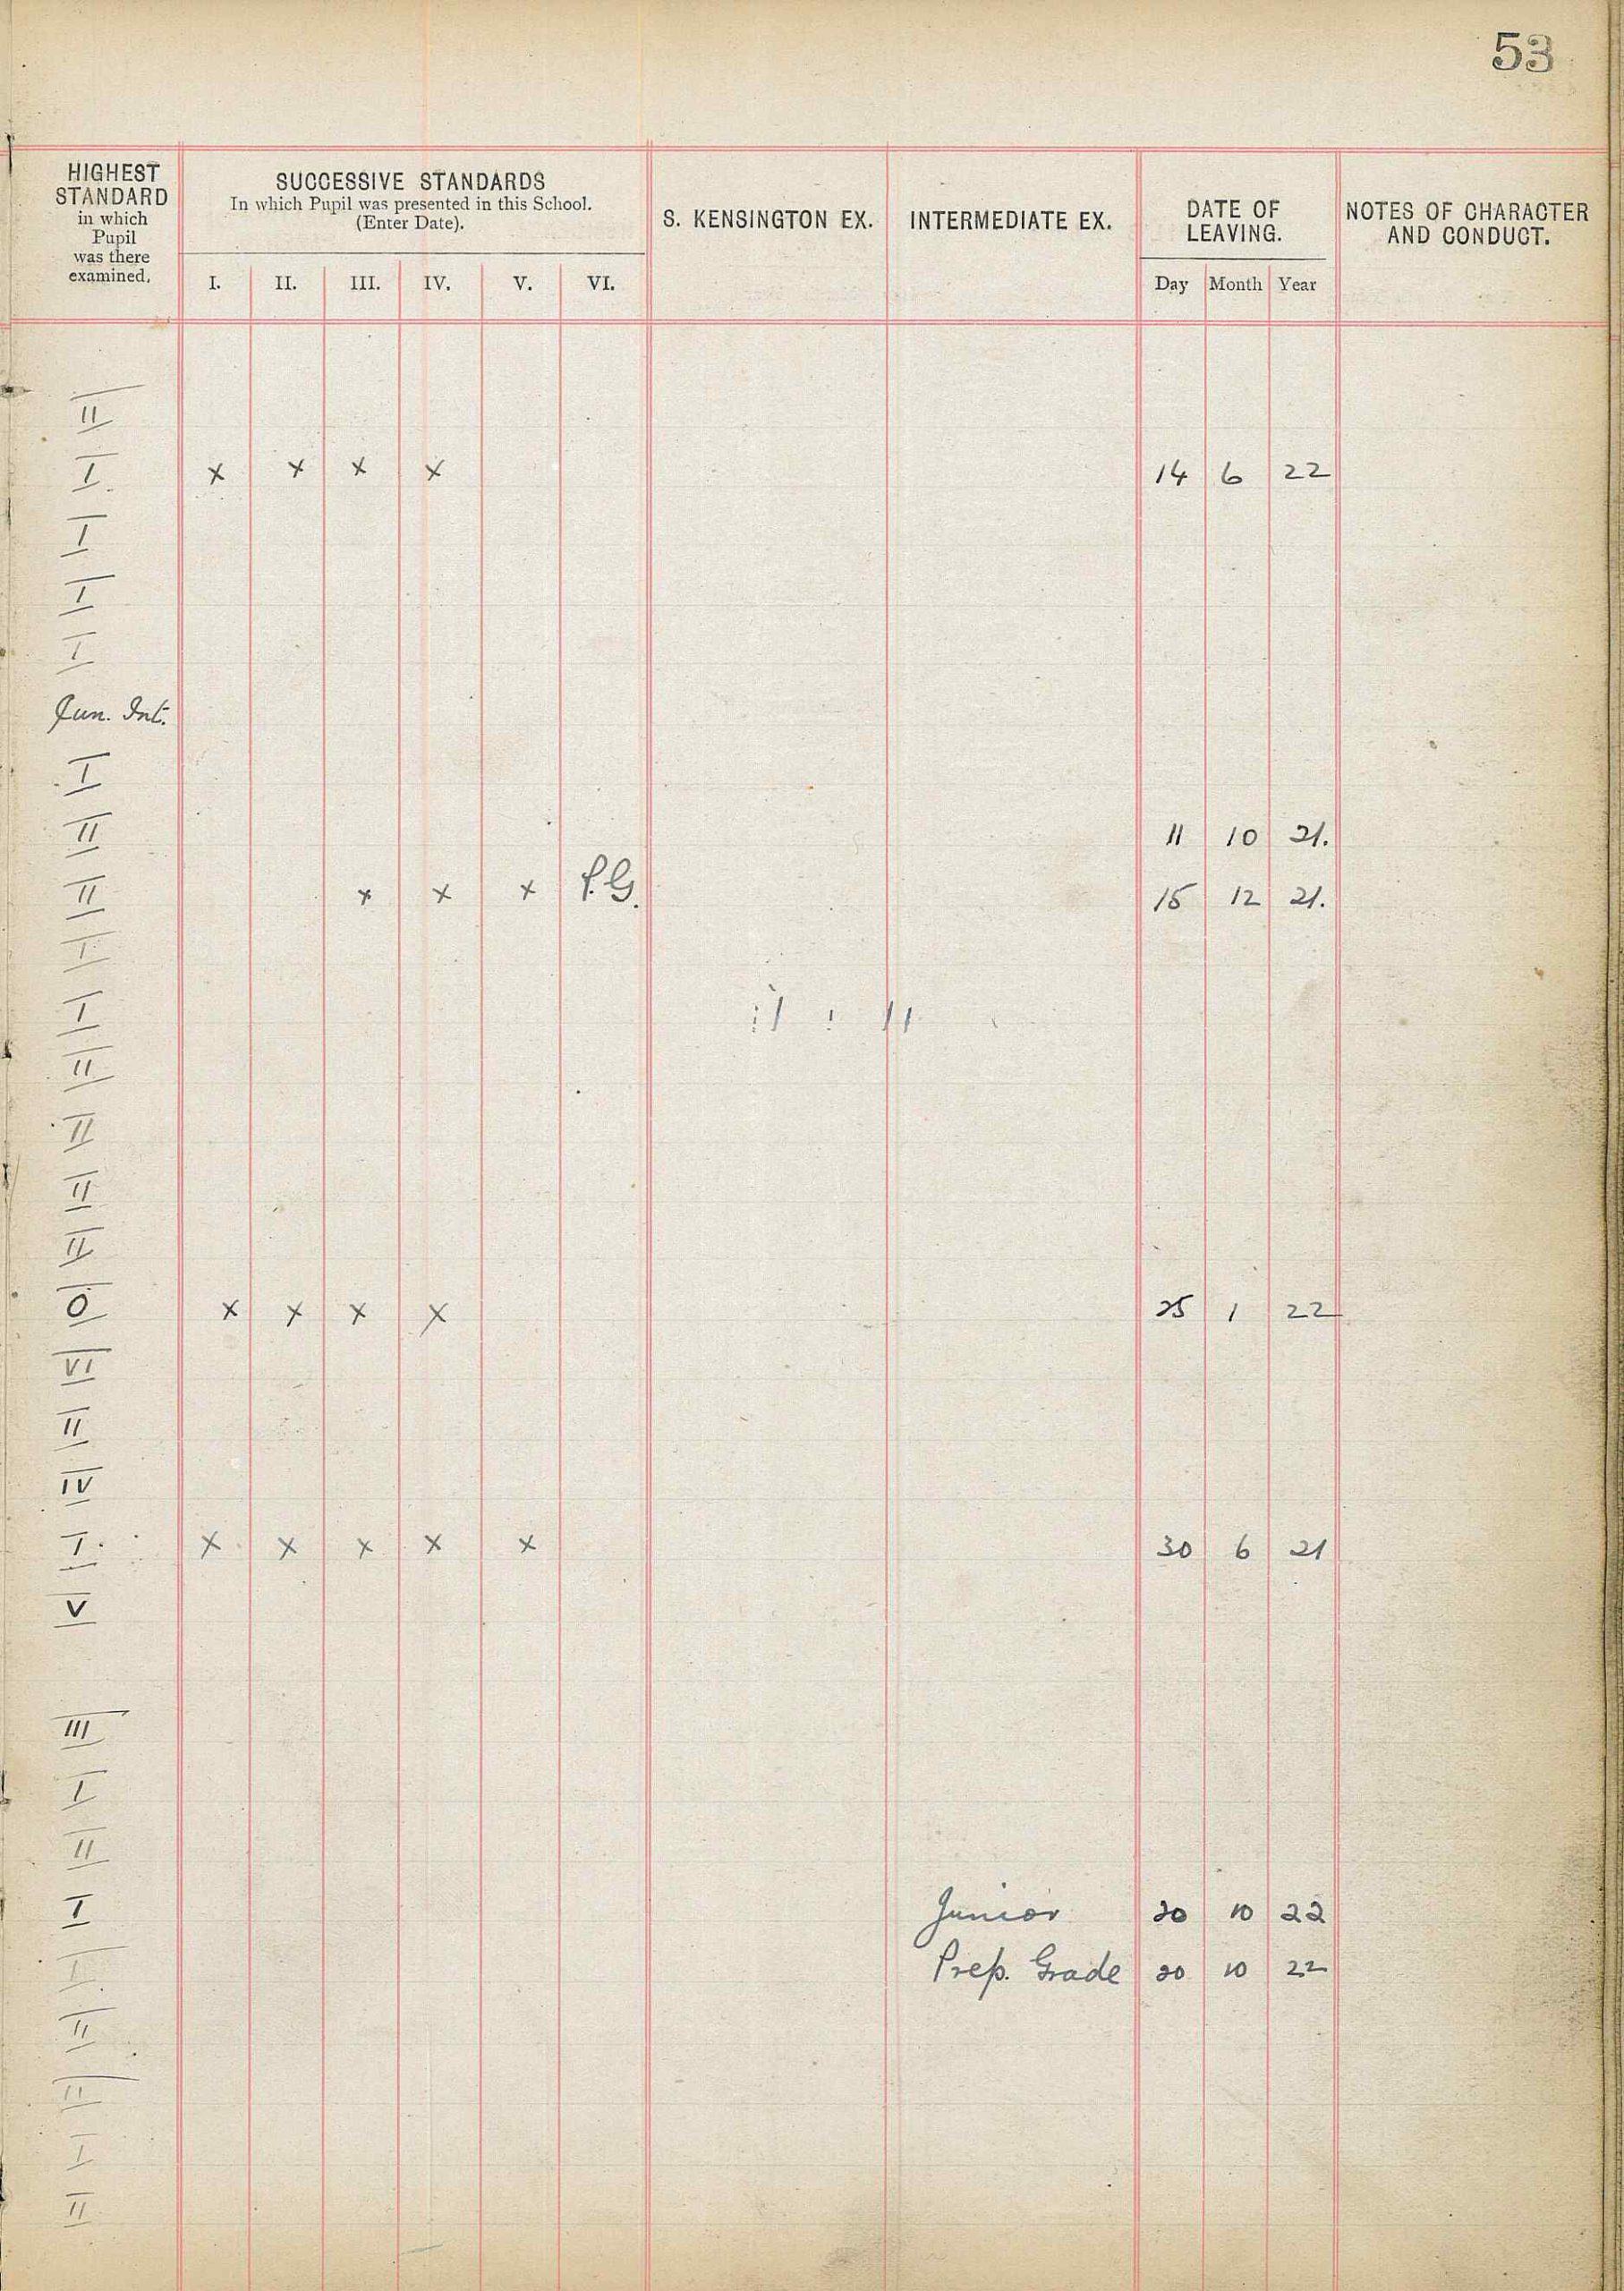 53
HIGHEST STANDARD in which Pupil was there examined.
SUCCESSIVE STANDARDS
In which Pupil was presented in this School.
(Enter Date).
I. II. III. IV. V. VI.
S. KENSINGTON EX.
INTERMEDIATE EX.
DATE OF LEAVING.
Day Month Year
NOTES OF CHARACTER AND CONDUCT.
II
I x x x x 14 6 22
I
I
I
Jun. Int.
I
II 11 10 21.
II x x x P.G. 15 12 21.
I
I
II
II
II
II
O x x x x 25 1 22
VI
II
IV
I. x x x x x 30 6 21
V
III
I
II
I Junior 20 10 22
I Prep. Grade 20 10 22
II
II
I
II